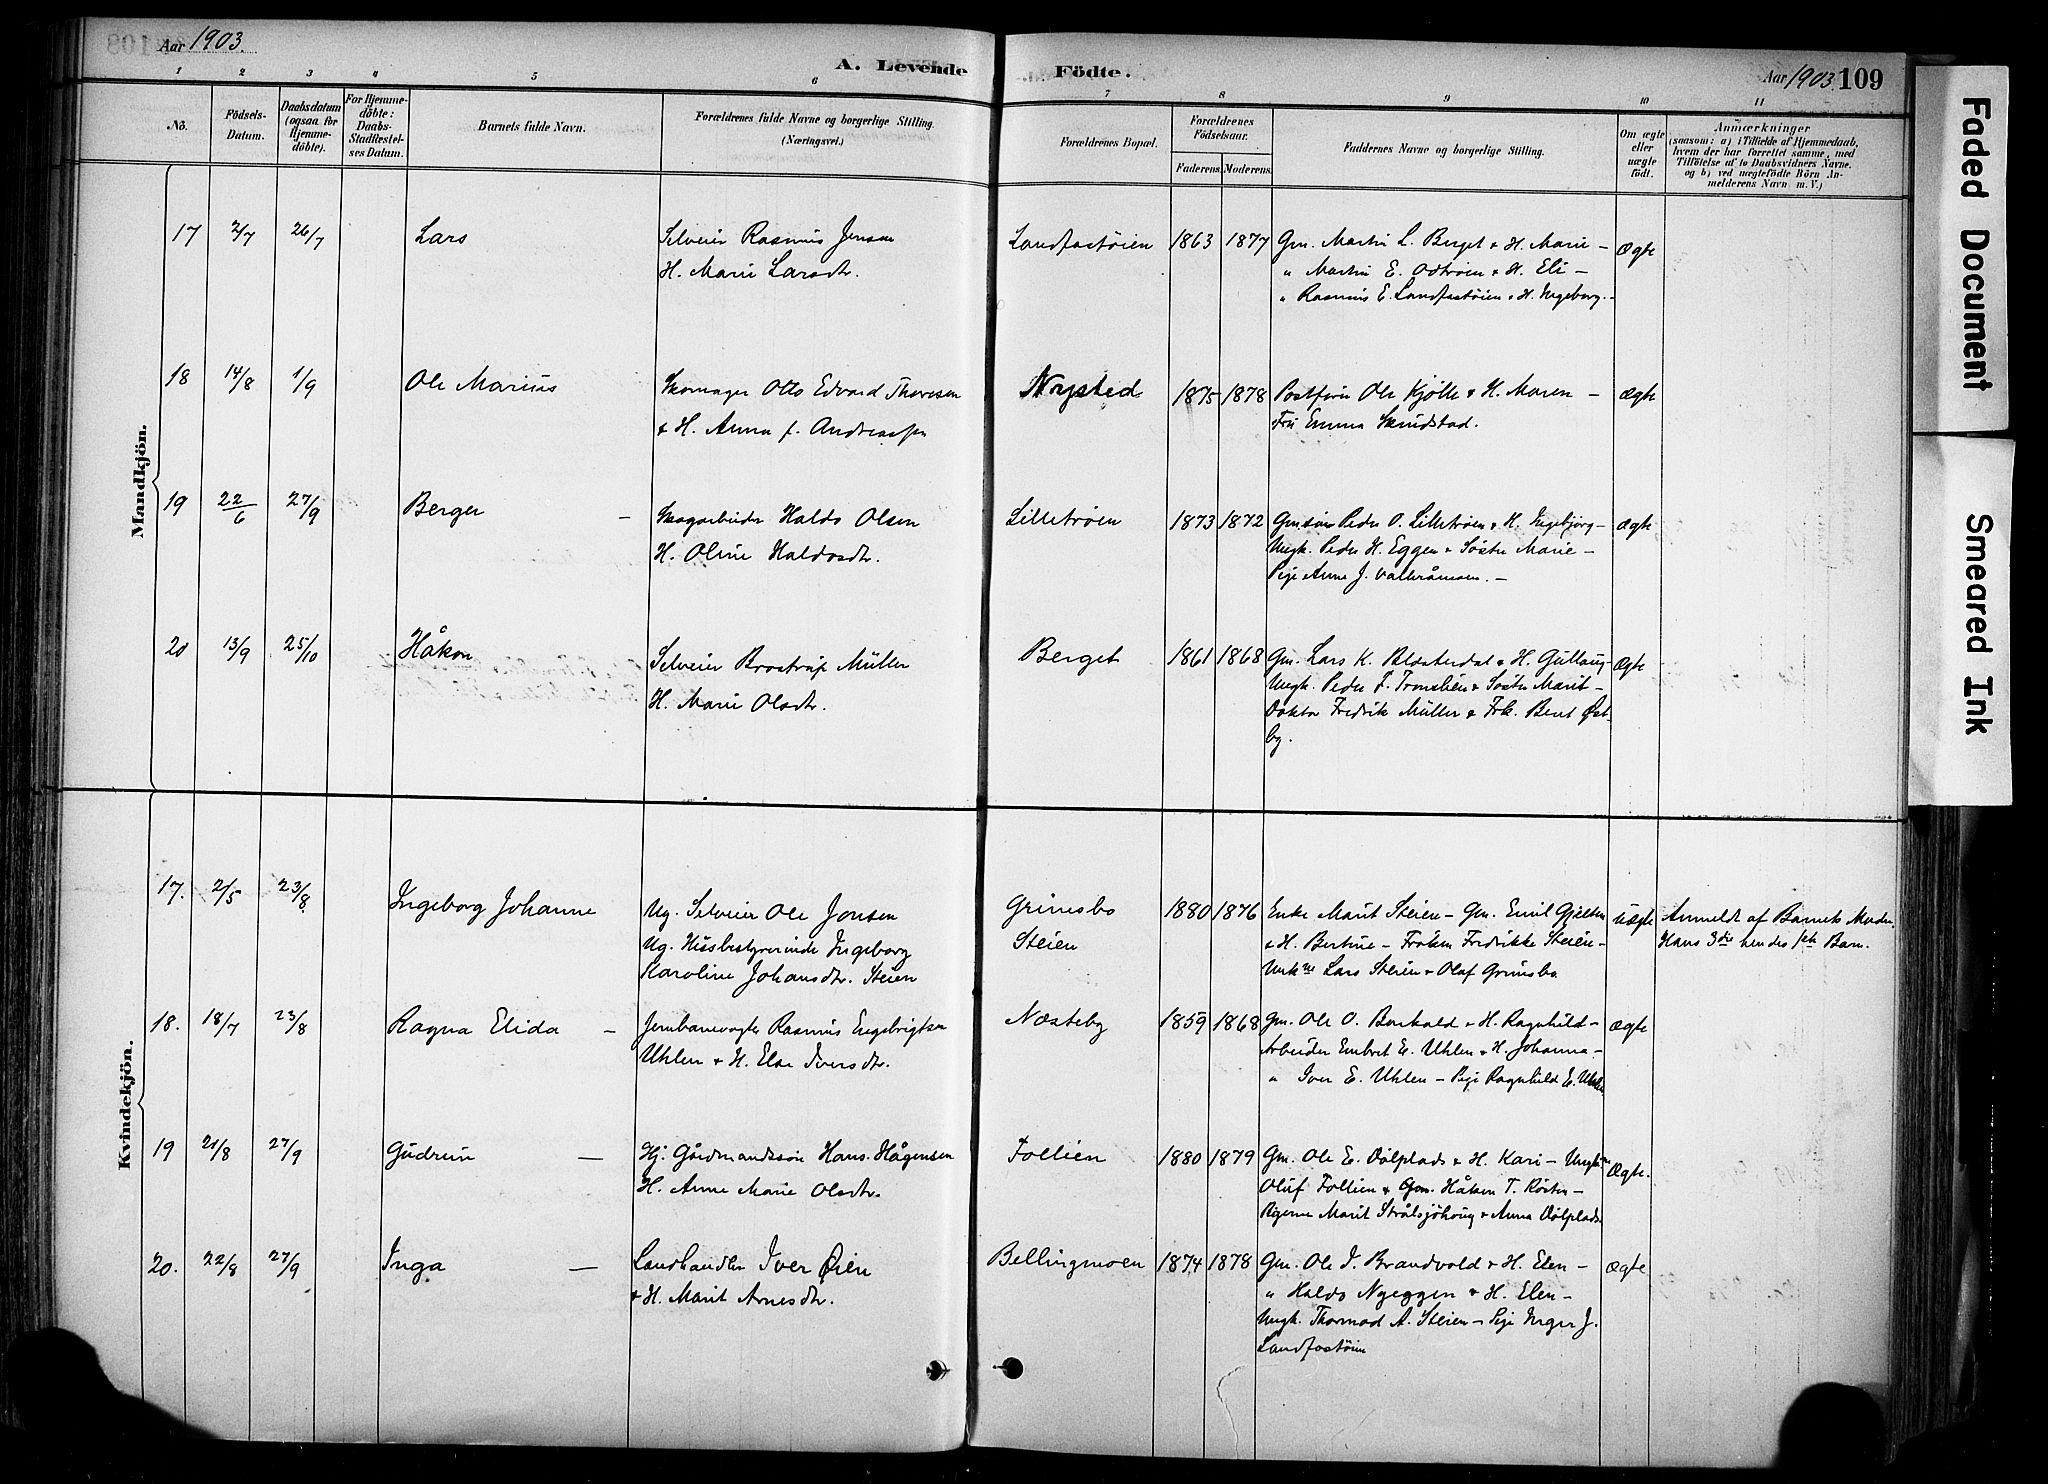 Aar 1903.
A. Levende Födte.
Aar 1903. 109
1 2 3 4 5 6 7 8 9 10 11
No.
Födsels-Datum.
Daabsdatum (ogsaa for Hjemme-döbte).
For Hjemme-döbte: Daabs-Stadfæstel-ses Datum.
Barnets fulde Navn.
Forældrenes fulde Navne og borgerlige Stilling. (Næringsvei.)
Forældrenes Bopæl.
Forældrenes Födselsaar.
Faderens. Moderens.
Faddernes Navne og borgerlige Stilling.
Om ægte eller uægte födt.
Anmærkninger
(saasom: a) i Tilfælde af Hjemmedaab,
hvem der har forrettet samme, med
Tilföielse af to Daabsvidners Navne.
og b) ved uægtefödte Börn An-
melderens Navn m. V.)
Mandkjön.
17 2/7 26/7 Lars Selveier Rasmus Jensen Landfastøien 1863 1877 Gm. Martin L. Berget & H. Marie – Ægte
H. Marie Larsdtr. " Martin E. Odtrøen & H. Eli –
" Rasmus E. Landfastøien & H. Ingeborg. –
18 14/8 1/9 Ole Marius Skomager Otto Edvard Thoresen Nysted 1875 1878 Postfører Ole Kjølle & H. Maren – Ægte
& H. Anna f. Andreassen Fru Emma Skundstad.
19 22/6 27/9 Berger – Skogarbeider Haldo Olsen Lilletrøen 1873 1872 Gm.søn Peder O. Lilletrøen & H. Ingebjørg – Ægte
H. Oline Haldosdtr. Ungk. Peder H. Eggen & Søster Marie –
Pige Anne J. –
20 13/9 25/10 Håkon Selveier Brostrup Müller Berget 1861 1868 Gm. Lars K. & H. Gullaug – Ægte
H. Marie Olsdtr. Ungk. Peder F. Tronslien & Søster Marit –
Doktor Fredrik Müller & Frk. Bent Øst-
by.
Kvindekjön.
17. 2/5 23/8 Ingeborg Johanne Ug. Selveier Ole Jonsen Grimsbo 1880 1876 Enke Marit Steien – Gm. Emil Gjelten Uægte Anmeldt af Barnets Moder.
Ug. Husbestyrerinde Ingeborg Steien & H. Bertine – Frøken Fredrikke Steien – Hans 3die hendes 1ste Barn.
Karoline Johansdtr. Steien Unkne Lars Steien & Olaf Grimsbo
18. 18/7 23/8 Ragna Elida – Jernbanevogter Rasmus Engebrigtsen Næsteby 1859 1868 Gm. Ole O. Barkald & H. Ragnhild – Ægte
Uhlen & H. Else Iversdtr. Arbeider Embret E. Uhlen & H. Johanna –
" Iver E. Uhlen – Pige Ragnhild E. Uhlen
19 21/8 27/9 Gudrun – Hj. Gårdmandssøn Hans Hågensen Follien 1880 1879 Gm. Ole E. Dølplads & H. Kari – Ungk. Ægte.
H. Anne Marie Olsdtr. Oluf Follien & Gm. Håken T. Røsten –
Pigerne Marit Strålsjøhoug & Anna Dølplads
20. 22/8 27/9 Inga – Landhandler Iver Øien Bellingmoen 1874 1878 Gm. Ole I. Brandvold & H. Elen – Ægte
& H. Marit Arnesdtr. " Haldo Nyeggen & H. Elen –
Ungk. Thormod A. Steien – Pige Inger J.
Landfastøien
Faded Document
Smeared Ink